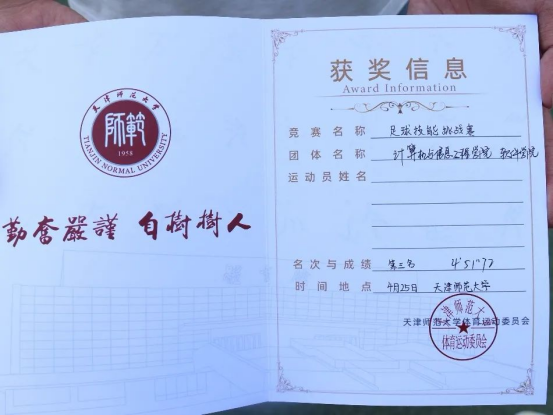 天津师范大学
師範
1958
TIANJIN NORMAL UNIVERSITY
勤奮嚴謹 自樹樹人
获奖信息
Award Information
竞赛名称 足球技能挑战赛
团体名称 计算机与信息工程学院 软件学院
运动员姓名
名次与成绩 第三名 4'51"77
时间地点 4月25日 天津师范大学
天津师范大学体育运动委员会
天津师范大学
体育运动委员会